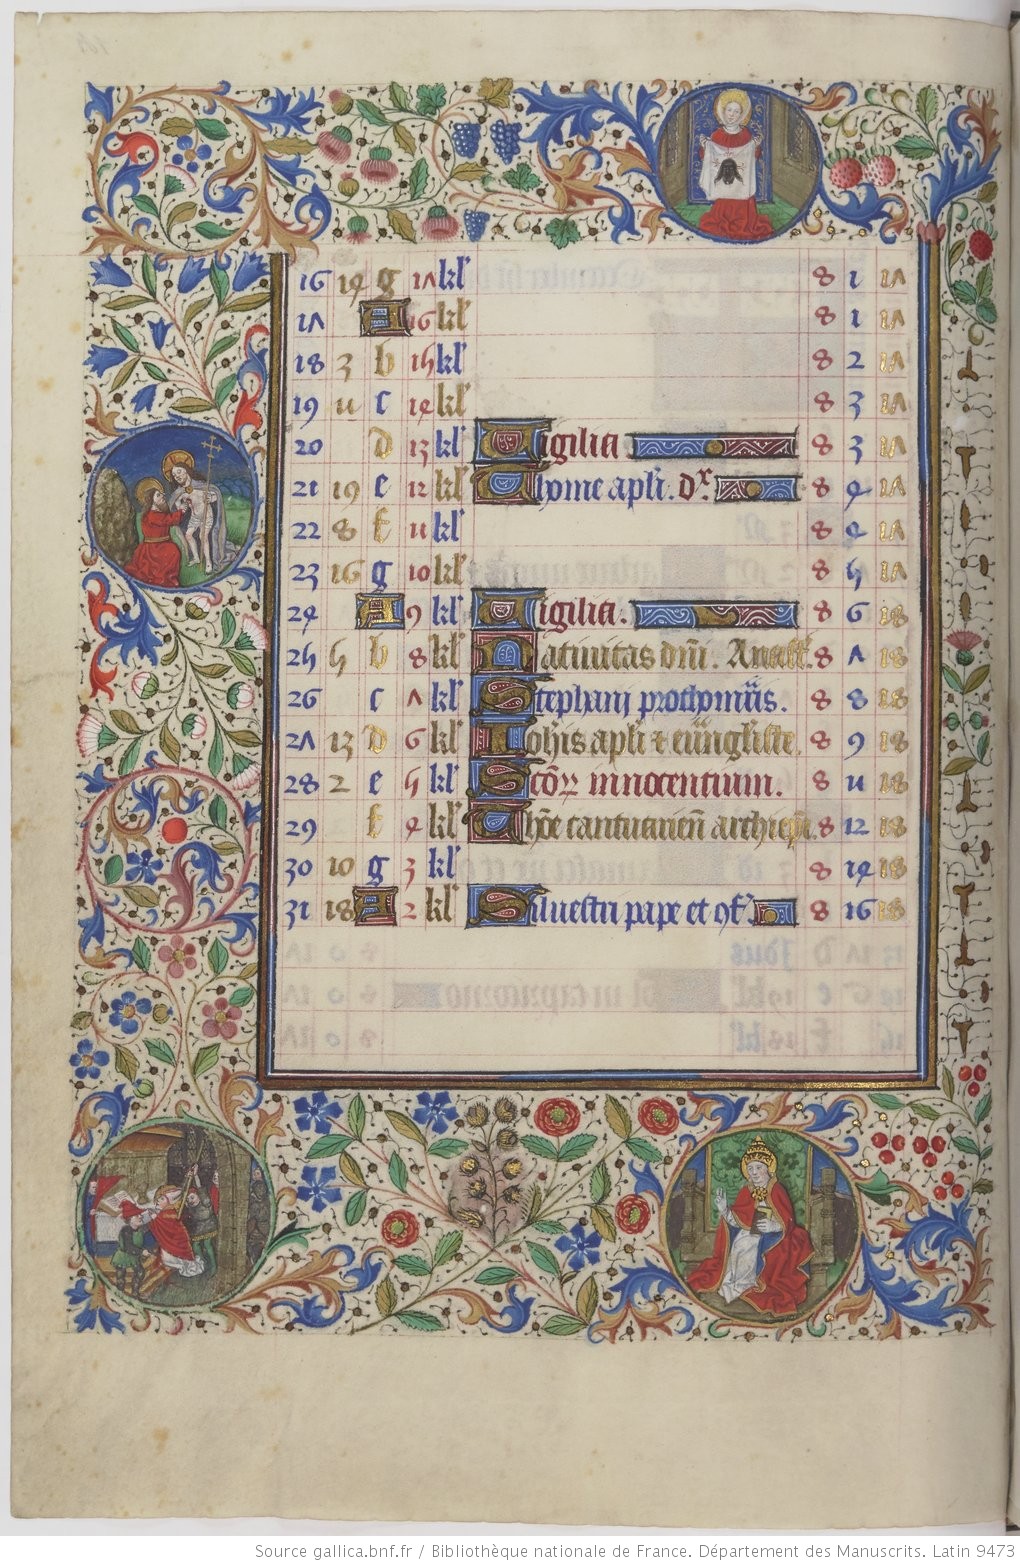 16 14 g 17 kl' 8 1 17
17 A 16 kl' 8 1 17
18 3 b 15 kl' 8 2 17
19 11 c 14 kl' 8 3 17
20 d 13 kl' Vigilia 8 3 17
21 19 e 12 kl' Thome apli. dx. 8 4 17
22 8 f 11 kl' 8 4 17
23 16 g 10 kl' 8 5 17
24 A 9 kl' Vigilia. 8 6 18
25 5 b 8 kl' Natiuitas dm̄i. 8 7 18
26 c 7 kl' Stephani 8 8 18
27 13 d 6 kl' Ioh̄is apl̄i 8 9 18
28 2 e 5 kl' Sctōꝝ innocentium. 8 11 18
29 f 4 kl' Thōe cantuarien̄ archiep̄i. 8 12 18
30 10 g 3 kl' 8 14 18
31 18 A 2 kl' Siluestri pape et ꝯf. 8 16 18
Source gallica.bnf.fr / Bibliothèque nationale de France. Département des Manuscrits. Latin 9473